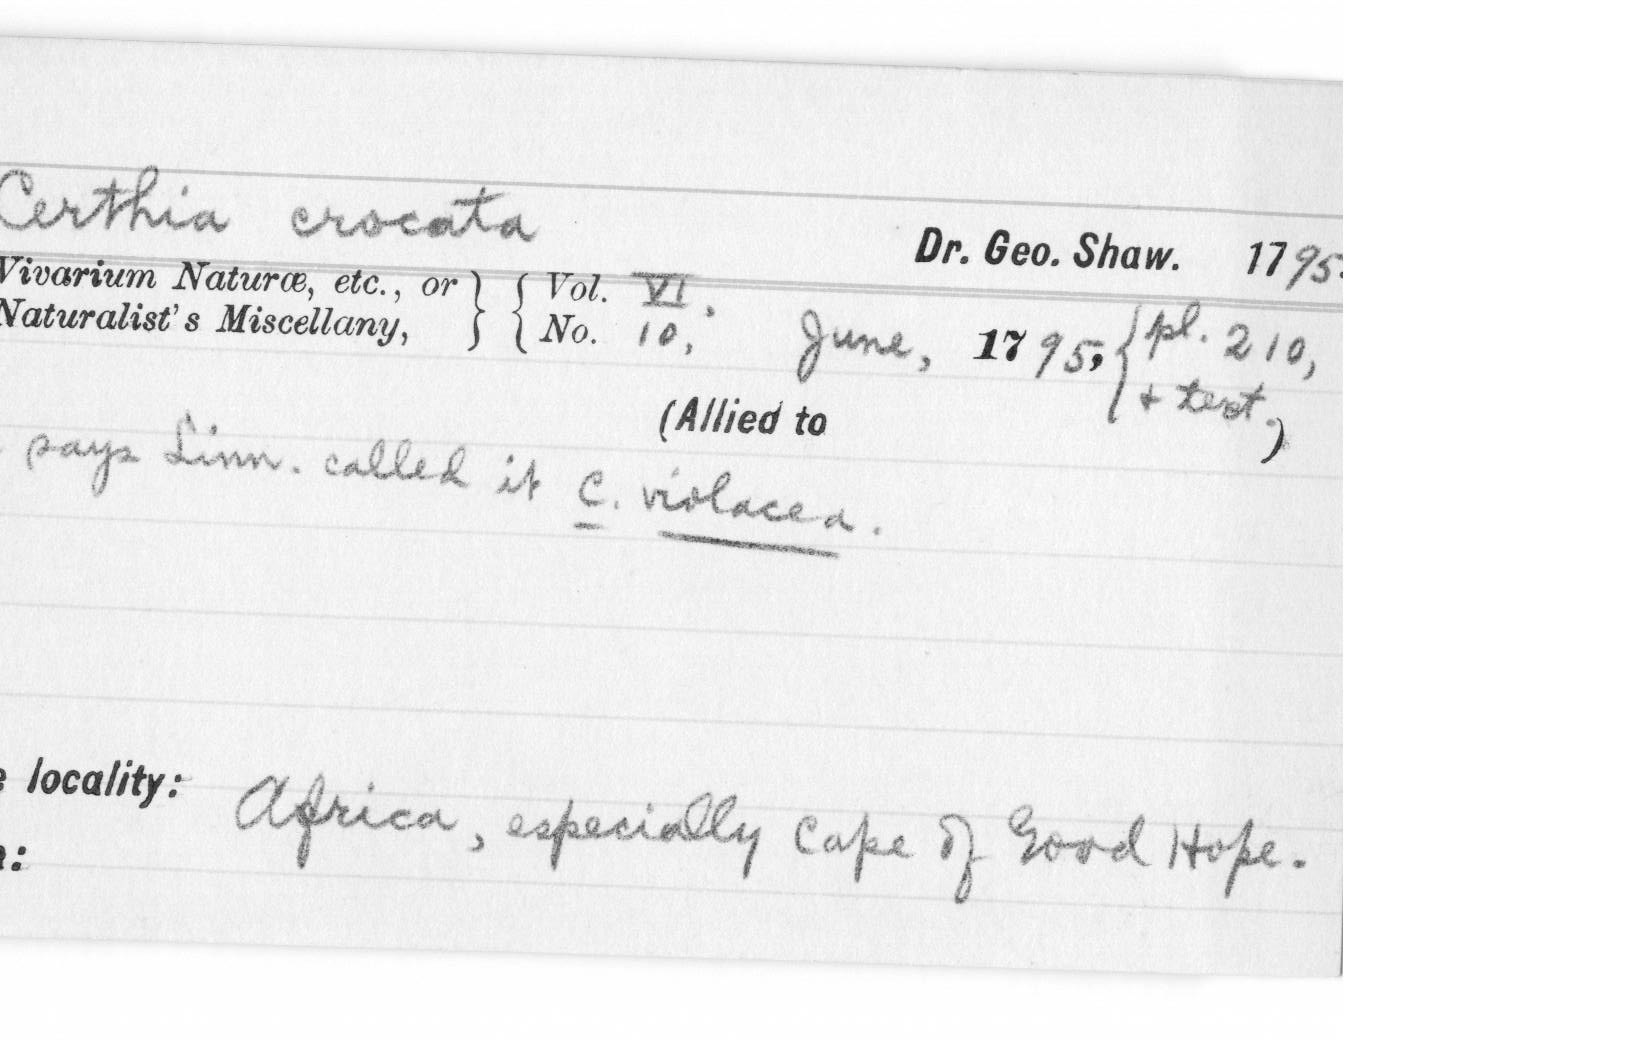 Certhia crocata
Dr. Geo. Shaw. 1795.
Vivarium Naturæ, etc., or } { Vol. VI,
Naturalist's Miscellany, No. 10, June, 1795, { pl. 210,
+ text.)
(Allied to
says Linn. called it C. violacea.
locality: Africa, especially Cape of Good Hope.